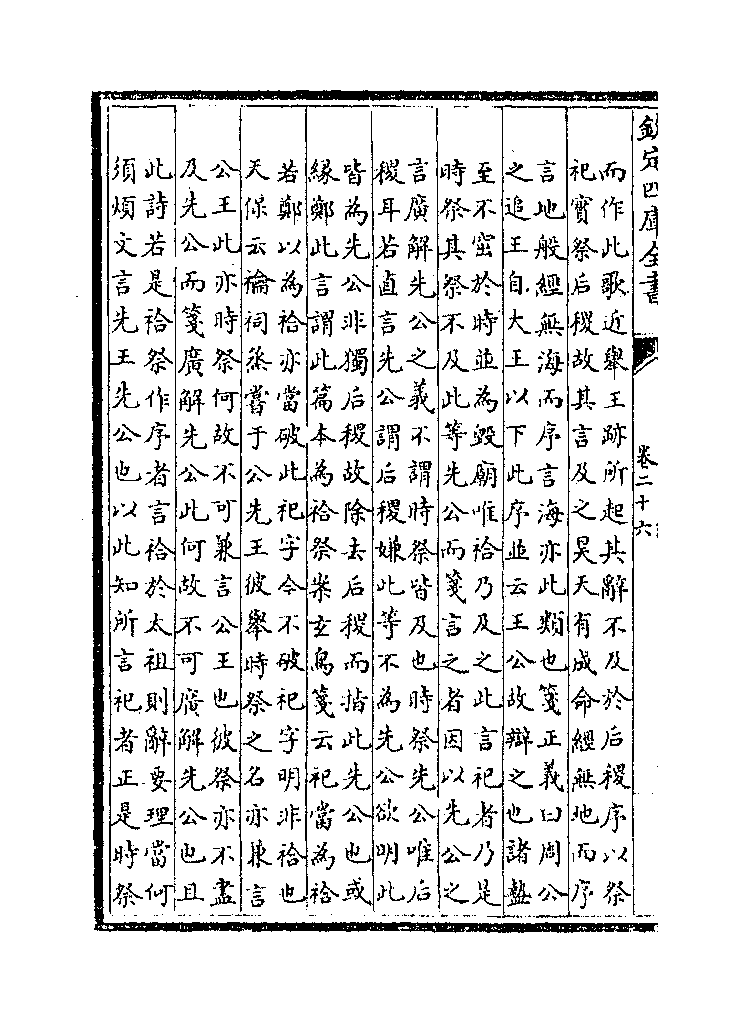 欽定四庫全書
卷二十六
而作此歌近舉王跡所起其辭不及於后稷序以祭
祀實祭后稷故其言及之昊天有成命經無地而序
言地般經無海而序言海亦此類也箋正義曰周公
之追王自大王以下此序並云王公故辯之也諸盩
至不窋於時並為毀廟唯祫乃及之此言祀者乃是
時祭其祭不及此等先公而箋言之者因以先公之
言廣解先公之義不謂時祭皆及也時祭先公唯后
稷耳若直言先公謂后稷嫌此等不為先公欲明此
皆為先公非獨后稷故除去后稷而指此先公也或
緣鄭此言謂此篇本為祫祭案玄鳥箋云祀當為祫
若鄭以為祫亦當破此祀字今不破祀字明非祫也
天保云禴祠烝嘗于公先王彼舉時祭之名亦兼言
公王此亦時祭何故不可兼言公王也彼祭亦不盡
及先公而箋廣解先公此何故不可廣解先公也且
此詩若是祫祭作序者言祫於太祖則辭要理當何
須煩文言先王先公也以此知所言祀者正是時祭